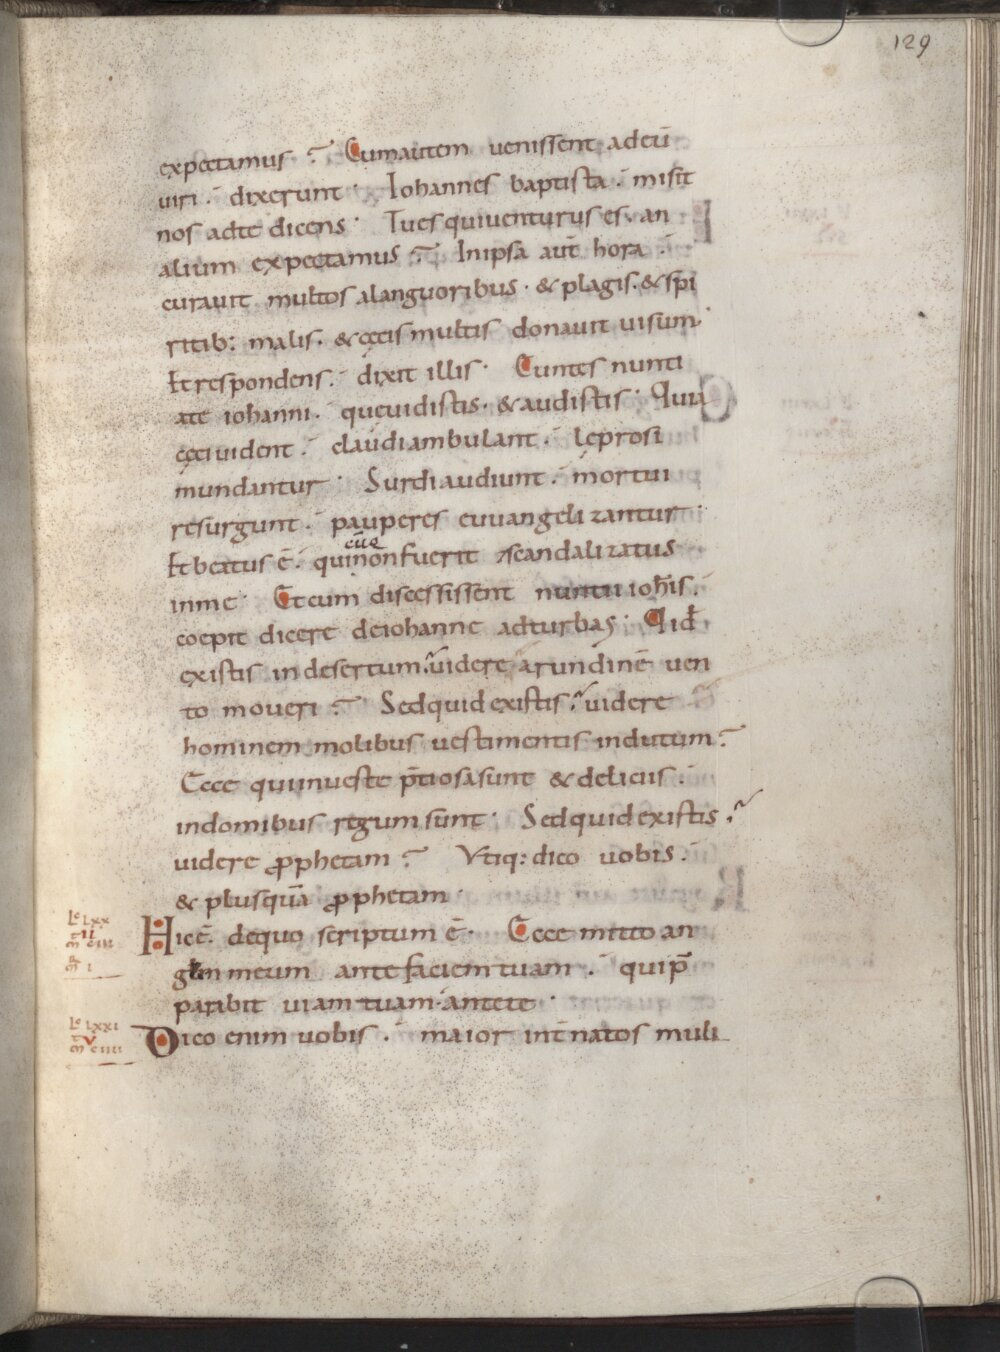 129
expectamus ? Cum autem venissent ad eū
uiri . dixerunt . Iohannes baptista . misit
nos ad te dicens . Tu es qui venturus es . an
alium expectamus ? In ipsa aūt hora .
curavit multos a languoribus . & plagis . & spi
ritib: malis . & cęcis multis donauit uisum .
Et respondens . dixit illis . Euntes nunti
ate iohanni . que uidistis . & audistis . Quia
cęci uident . claudi ambulant . leprosi
mundantur . Surdi audiunt . mortui
resurgunt . pauperes euuangelizantur .
Et beatus ē . qui cūq non fuerit scandalizatus
in me . Et cum discessissent nuntii ioħis .
coepit dicere de iohanne ad turbas . Qid
existis in desertum ? uidere arundinē ven
to moveri ? Sed quid existis ? uidere
hominem molibus vestimentis indutum ?
Ecce qui in veste p̄tiosa sunt & deliciis .
in domibus regum sunt . Sed quid existis ?
videre ꝓphetam ? Vtiq: dico vobis .
& plus quā ꝓphetam .
Lc LXX
II
m̄ CIII
m̄ I
Hic ē . de quo scriptum ē . Ecce mitto an
glm meum ante faciem tuam . qui p̄
parabit viam tuam . ante te .
Lc LXXI
V
m̄ CIIII
Dico enim uobis . maior int̄ natos muli